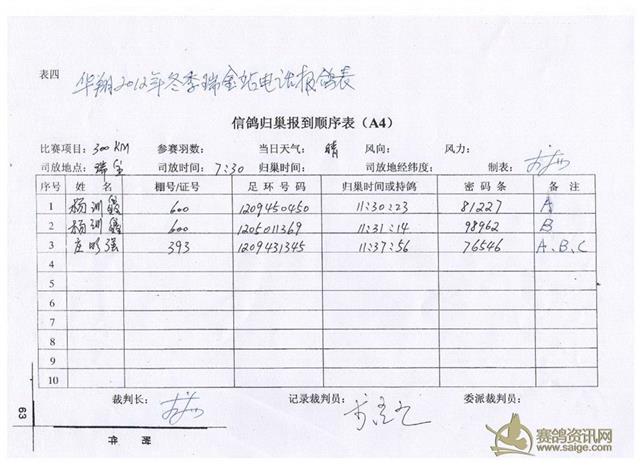 表四 华翔2012年冬季瑞金站电话报鸽表
信鸽归巢报到顺序表（A4）
比赛项目：300KM 参赛羽数： 当日天气：晴 风向： 风力：
司放地点：瑞金 司放时间：7:30 归巢时间： 司放地经纬度： 制表：
序号 姓 名 棚号/证号 足 环 号 码 归巢时间或持鸽 密 码 条 备 注
1 杨训 600 1209450450 11:30:23 81227 A
2 杨训 600 1205011369 11:31:14 98962 B
3 庄 强 393 1209431345 11:37:56 76546 A、B、C
4
5
6
7
8
9
10
裁判长： 记录裁判员： 委派裁判员：
63
赛鸽资讯网
www.saige.com